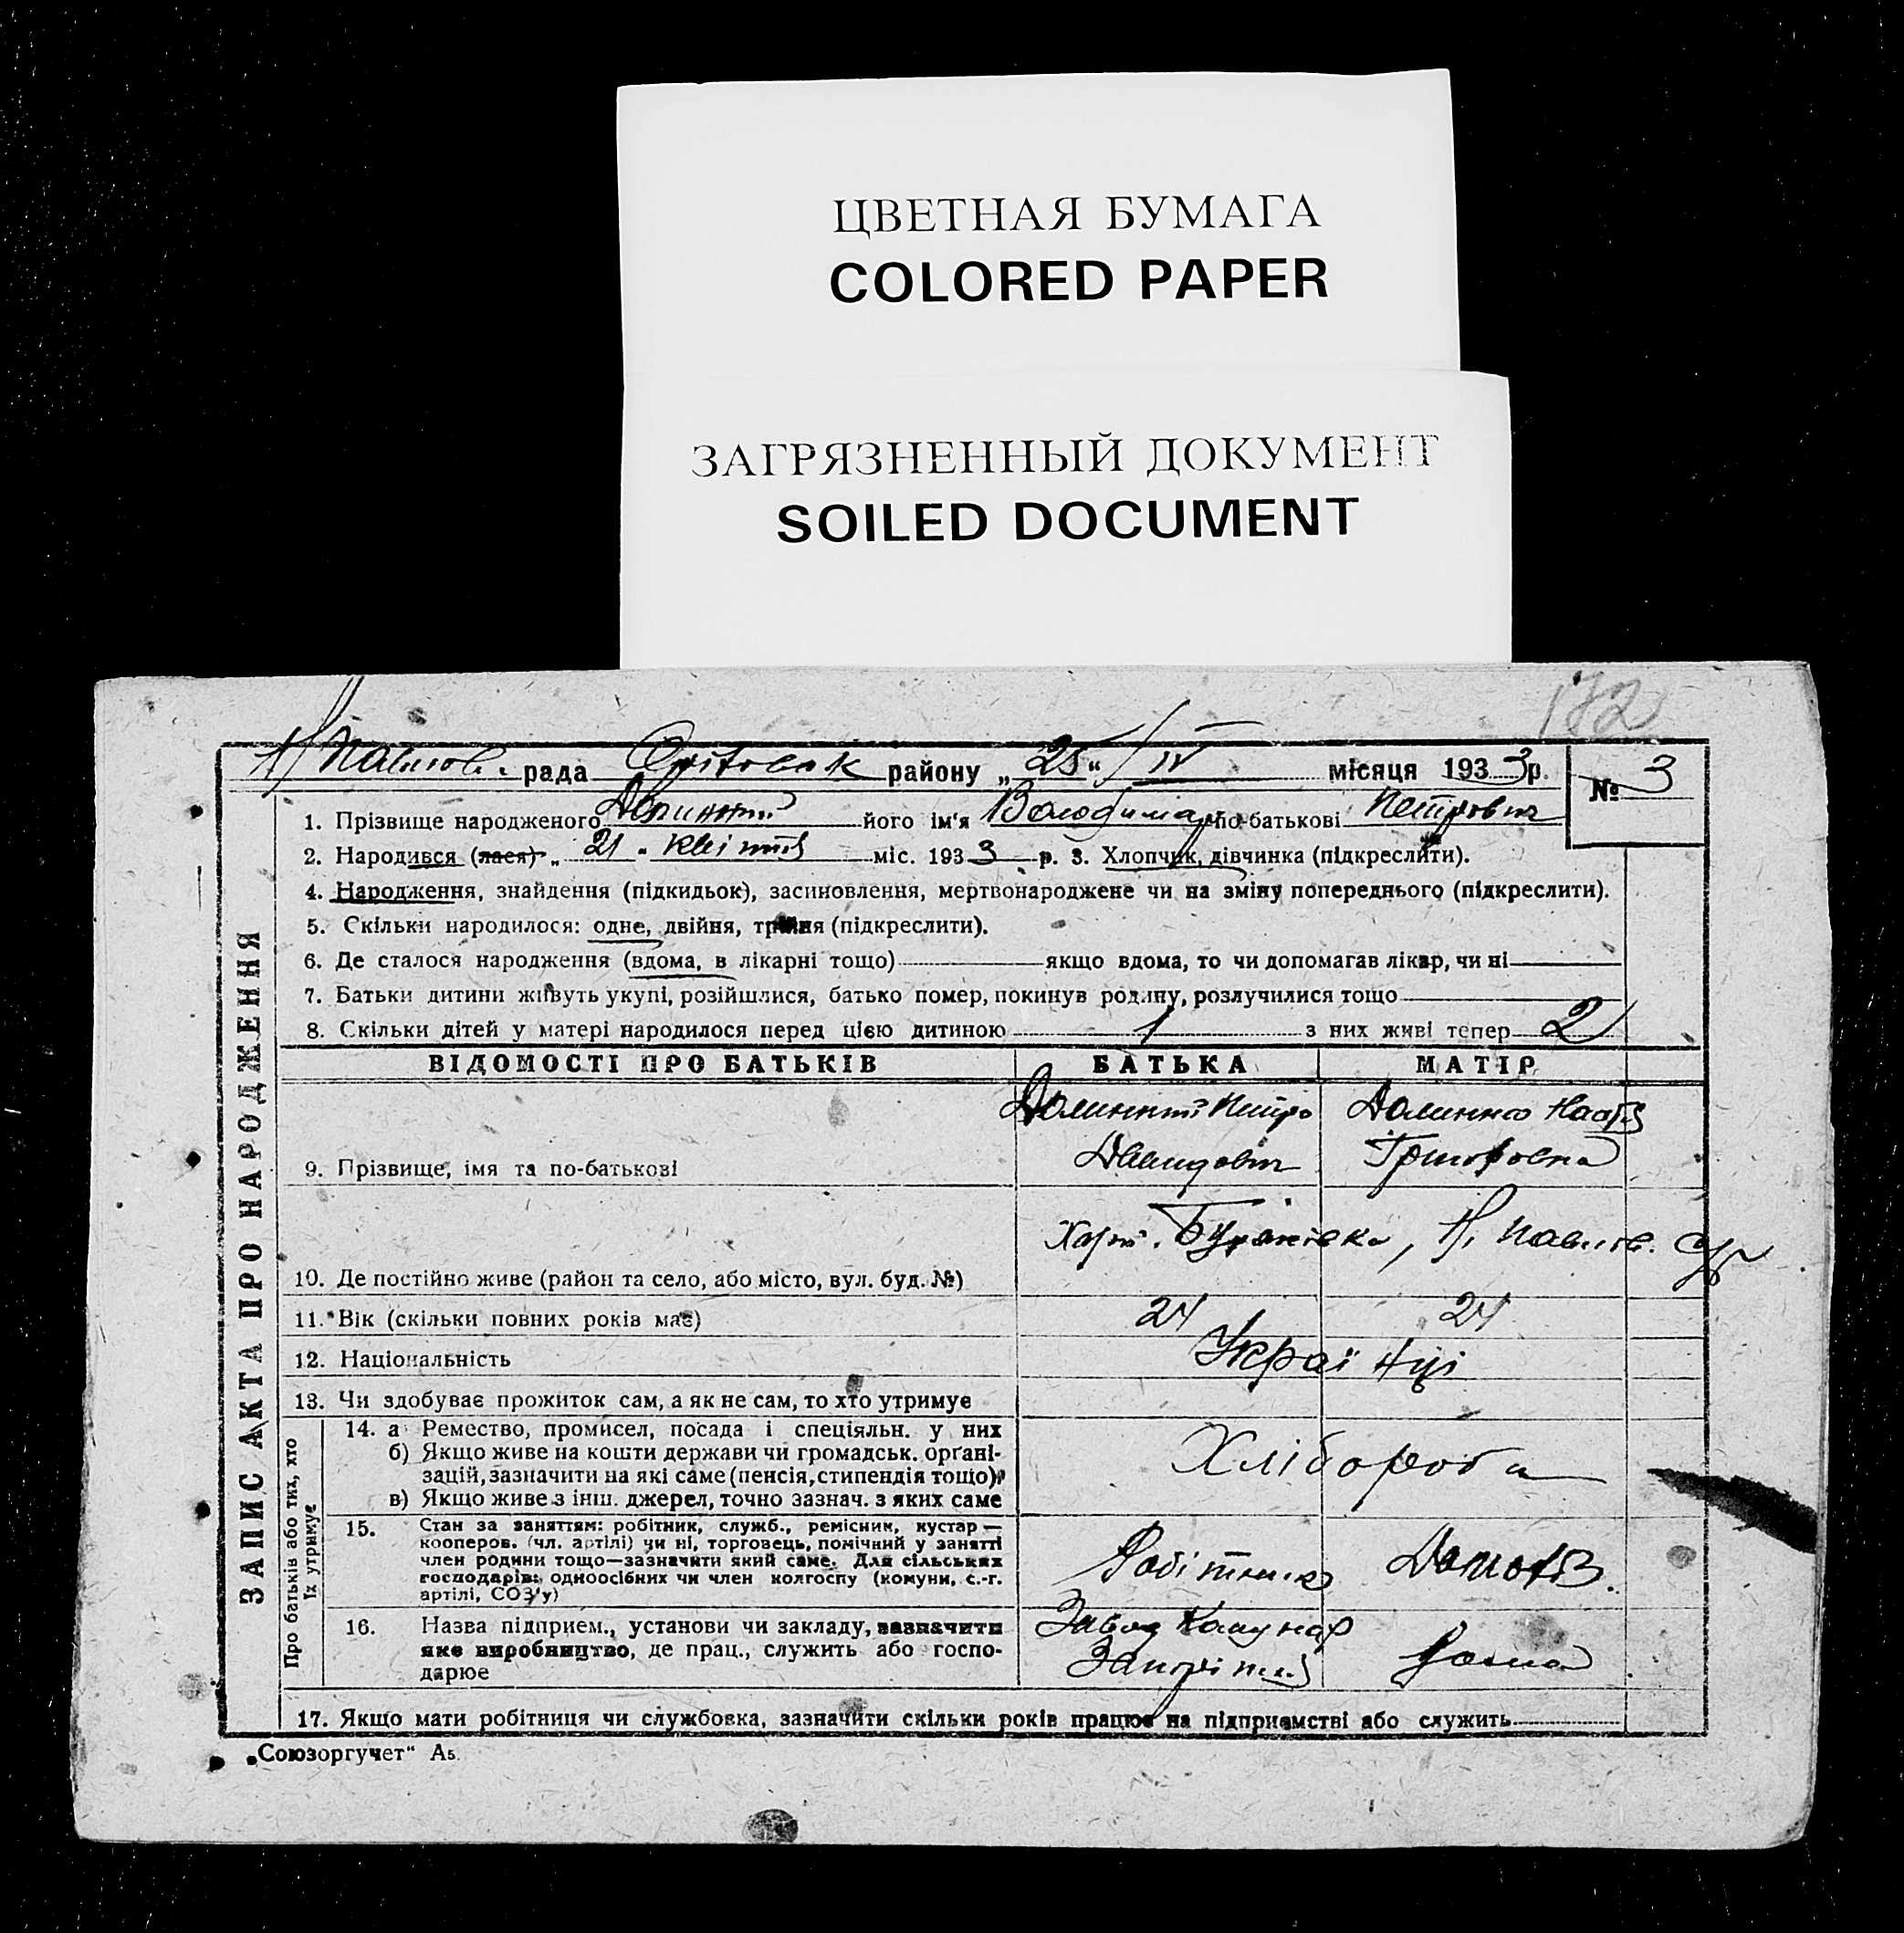 ЦВЕТНАЯ БУМАГА
COLORED PAPER
ЗАГРЯЗНЕННЫЙ ДОКУМЕНТ
SOILED DOCUMENT
172
рада району „25“ IV місяця 1933 р. № 3
1. Прізвище народженого його ім'я Володимир по-батькові Петрович
2. Народився (лася) „21„ квітня міс. 1933 р. 3. Хлопчик, дівчинка (підкреслити).
4. Народження, знайдення (підкидьок), засиновлення, мертвонароджене чи на зміну попереднього (підкреслити).
5. Скільки народилося: одне, двійня, трійня (підкреслити).
6. Де сталося народження (вдома, в лікарні тощо) якщо вдома, то чи допомагав лікар, чи ні
7. Батьки дитини живуть укупі, розійшлися, батько помер, покинув родину, розлучилися тощо
8. Скільки дітей у матері народилося перед цією дитиною 1 з них живі тепер 2
ЗАПИС АКТА ПРО НАРОДЖЕННЯ
ВІДОМОСТІ ПРО БАТЬКІВ БАТЬКА МАТІР
Петро
9. Прізвище, імя та по-батькові Давидович Григоровна
10. Де постійно живе (район та село, або місто, вул. буд. №)
11. Вік (скільки повних років має) 24 24
12. Національність Украї нці
13. Чи здобуває прожиток сам, а як не сам, то хто утримує
Про батьків або тих, хто
їх утримує
14. а Ремество, промисел, посада і спеціяльн. у них
б) Якщо живе на кошти держави чи громадськ. органі-
зацій, зазначити на які саме (пенсія, стипендія тощо)
в) Якщо живе з інш. джерел, точно зазнач. з яких саме
Хлібороби
15. Стан за заняттям: робітник, служб., ремісник, кустар—
кооперов. (чл. артілі) чи ні, торговець, помічний у занятті
член родини тощо—зазначити який саме. Для сільських
господарів: одноосібних чи член колгоспу (комуни, с.-г.
артілі, СОЗ'у)
Робітник
16. Назва підприєм., установи чи закладу, зазначити
яке виробництво, де прац., служить або госпо-
дарює
Завод Комунар
дома
17. Якщо мати робітниця чи службовка, зазначити скільки років працює на підприємстві або служить
„Союзоргучет“ А5.